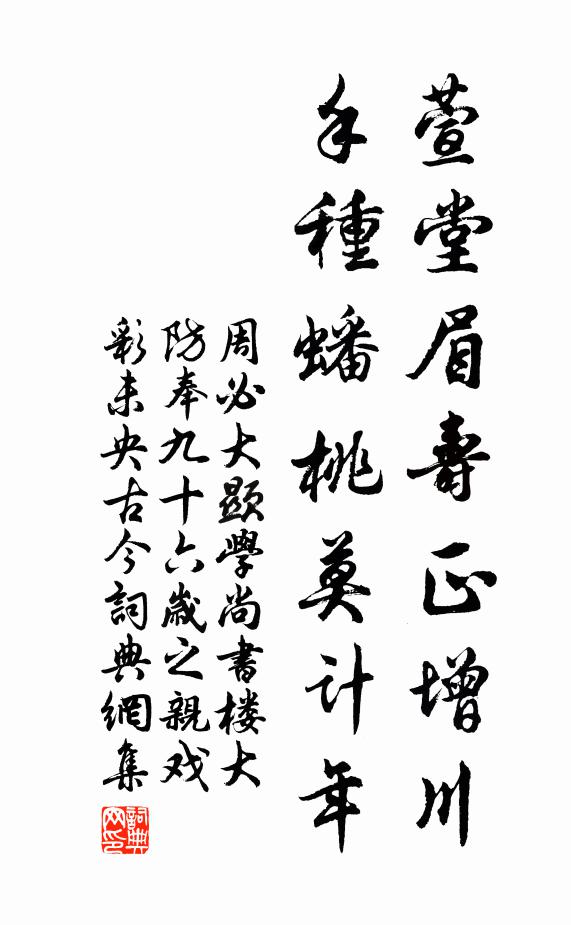 萱堂眉壽正增川
手種蟠桃莫計年
周必大顯學尚書楼大
防奉九十六歲之親戏
彩未央古今詞典網集
詞典网印